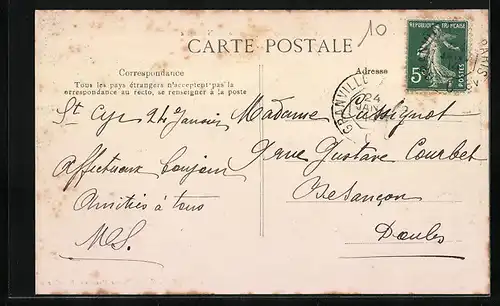 10
CARTE POSTALE
RÉPUBLIQUE FRANÇAISE
5c
POSTES
PARIS
GRANVILLE
24
JAN
Correspondance
Tous les pays étrangers n'acceptent pas la
correspondance au recto, se renseigner à la poste
Adresse
St Cyr 24 Janvier
Affectueux bonjour
Amitiés à tous
MS.
Madame Passignot
9 rue Gustave Courbet
Besançon
Doubs